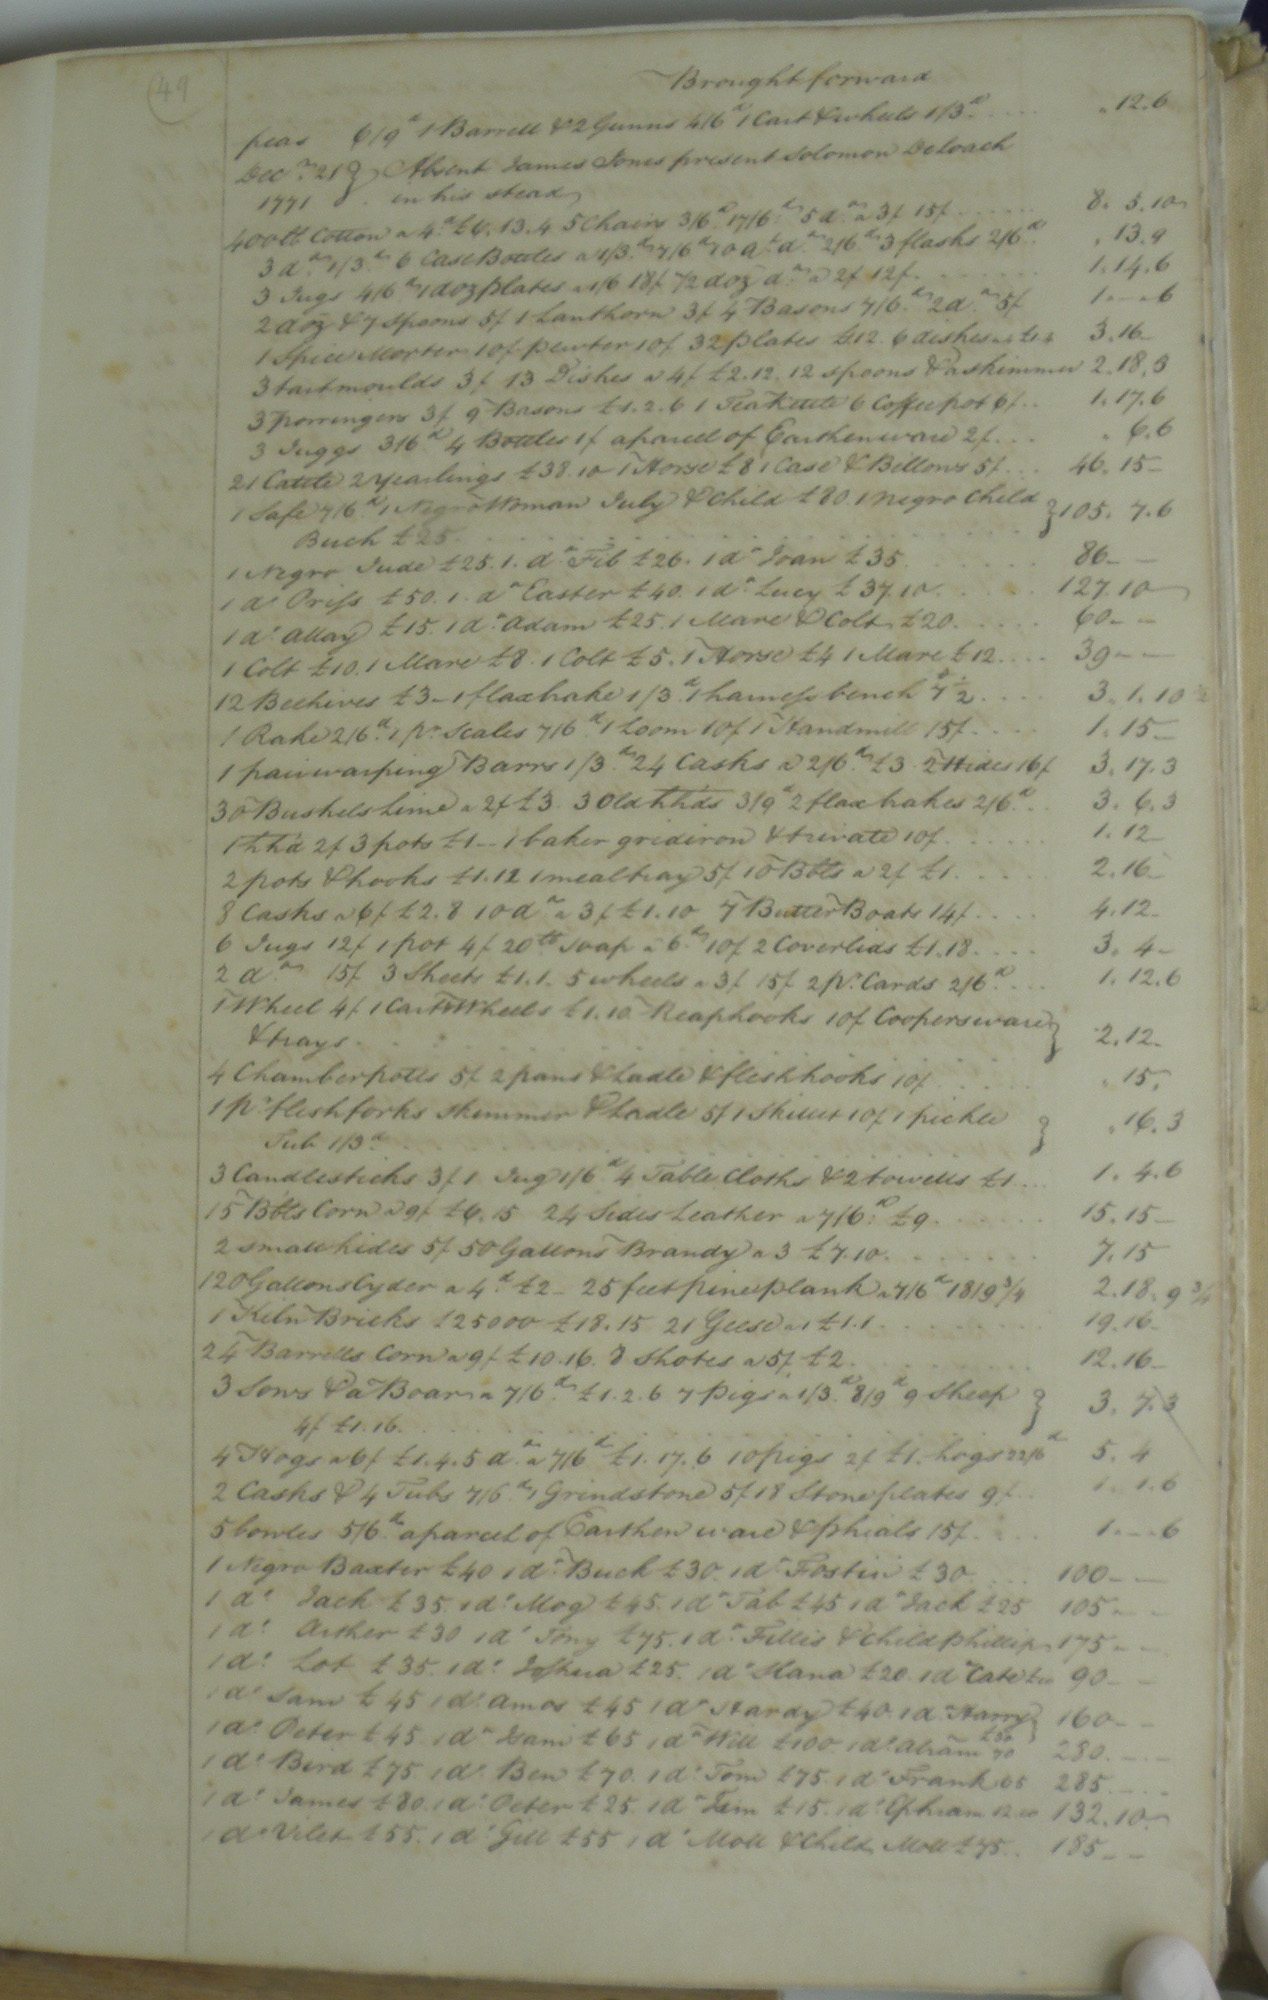 49
Brought forward
peas 6/9d 1 Barrell & 2 Gunns 4/6d 1 Cart & wheels 1/3d .... " 12.6
Decr 21 } Absent James Jones present Solomon DeLoach
1771 in his stead
400lb Cotton a 4d £6.13.4 5 Chairs 3/6d 17/6d 5 do a 3/ 15/ .... 8. 5.10
3 do 1/3d 6 Case Bottles a 1/3d 7/6d 3 flasks 2/6d " 13.9
3 Jugs 4/6d 1 doz plates a 1/6 18/ 1/2 doz do a 2/ 12/ .... 1.14.6
2 doz & 7 spoons 5/ 1 Lanthorn 3/ 4 Basons 7/6d 2 do 5/ 1 - - 6
1 Spice Morter 10/ pewter 10/ 32 plates £1.12. 6 dishes 3.16-
3 tart moulds 3/ 13 Dishes a 4/ £2.12. 12 spoons & a skimmer 2.18.3
3 porringers 3/ 9 Basons £1.2.6 1 Teakettle 6 Coffeepot 6/ .. 1.17.6
3 Juggs 3/6d 4 Bottles 1/ a parcel of Earthenware 2/ ... " 6.6
21 Cattle 2 yearlings £38.10 1 Horse £8 1 Case & Bellows 5/ ... 46.15-
1 Safe 7/6d 1 Negro Woman July & Child £80. 1 negro Child } 105. 7.6
Buck £25
1 Negro Jude £25. 1. do Fib £26. 1 do Joan £35 ..... 86- -
1 do Priss £50. 1. do Easter £40. 1 do Lucy £37.10. .... 127.10
1 do Allay £15. 1 do Adam £25. 1 Mare & Colt £20. .... 60- -
1 Colt £10. 1 Mare £8. 1 Colt £5. 1 Horse £4 1 Mare £12 .... 39- -
12 Beehives £3 - 1 flaxbrake 1/3d 1 harness bench 7 1/2 .... 3. 1.10 1/2
1 Rake 2/6d 1 pr. Scales 7/6d 1 Loom 10/ 1 Handmill 15/ .... 1.15-
1 pair warping Barrs 1/3d 24 Casks a 2/6d £3. 2 Hides 16/ 3.17.3
30 Bushels Lime a 2/ £3. 3 Old hhds 3/9d 2 flax brakes 2/6d .. 3. 6.3
1 hhd 2/ 3 pots £1 - 1 baker gridiron & trivate 10/ ..... 1.12-
2 pots & hooks £1.12 1 mealtray 5/ 10 Bbls a 2/ £1. .... 2.16-
8 Casks a 6/ £2.8 10 do a 3/ £1.10 7 Butter Boats 14/ .... 4.12-
6 Jugs 12/ 1 pot 4/ 20lb soap a 6d 10/ 2 Coverlids £1.18. .... 3. 4-
2 do 15/ 3 Sheets £1.1. 5 wheels a 3/ 15/ 2 pr. Cards 2/6d ... 1.12.6
1 Wheel 4/ 1 Cart & Wheels £1.10 Reaphooks 10/ Coopersware } 2.12-
& trays
4 Chamberpotts 5/ 2 pans & Ladle & fleshhooks 10/ .... " 15.
1 pr. fleshforks skimmer & Ladle 5/ 1 Skillet 10/ 1 pickle } " 16.3
Tub 1/3d
3 Candlesticks 3/ 1 Jug 1/6d 4 Table Cloths & 2 towells £1 ... 1. 4.6
15 Bbls Corn a 9/ £6.15 24 Sides Leather a 7/6d £9. .... 15.15-
2 small hides 5/ 50 Gallons Brandy a 3 £7.10. .... 7.15
120 Gallons Cyder a 4d £2 - 25 feet pine plank a 7/6d 18/9 3/4 2.18.9 3/4
1 Kiln Bricks 25000 £18.15 21 Geese a 1 £1.1 ..... 19.16-
24 Barrells Corn a 9/ £10.16. 8 Shotes a 5/ £2. .... 12.16-
3 Sows & a Boar a 7/6d £1.2.6 7 pigs a 1/3d 8/9d 9 Sheep } 3. 7.3
4/ £1.16.
4 Hogs a 6/ £1.4. 5 do a 7/6d £1.17.6 10 pigs 2/ £1. hogs 22/6d 5. 4
2 Casks & 4 Tubs 7/6d 1 Grindstone 5/ 18 Stone plates 9/ .. 1. 1.6
5 bowles 5/6d a parcel of Earthen ware & phials 15/ .... 1 - - 6
1 Negro Baxter £40 1 do Buck £30. 1 do Fostin £30 .... 100- -
1 do Jack £35. 1 do Mog £45. 1 do Tab £45 1 do Jack £25 105- -
1 do Arther £30 1 do Tony £75. 1 do Fillis & Child phillip 175- -
1 do Lot £35. 1 do Joshua £25. 1 do Hana £20. 1 do Cate 90- -
1 do Sam £45 1 do Amos £45 1 do Hardy £40. 1 do Harry } 160- -
£30
1 do Peter £45. 1 do Isam £65 1 do Will £100. 1 do Abram 70 280. - -
1 do Bird £75. 1 do Ben £70. 1 do Tom £75. 1 do Frank 65 285. - -
1 do James £80. 1 do Peter £25. 1 do Tim £15. 1 do Ephram 12.10 132.10.
1 do Vilet £55. 1 do Gill £55 1 do Moll & Child Moll £75. 185- -